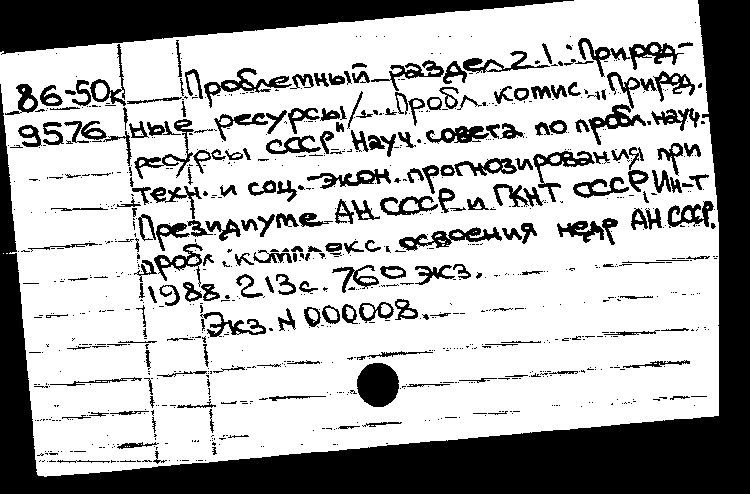 86-50к Проблемный раздел 2.1.: Природ-
9576 ные ресурсы /... Пробл. комис. „Природ.
ресурсы СССР" Науч. совета по пробл. науч.-
техн. и соц.-экон. прогнозирования при
Президиуме АН СССР и ГКНТ СССР, Ин-т
пробл. комплекс. освоения недр АН СССР.
1988. 213с. 760 экз.
Экз. N 000008.